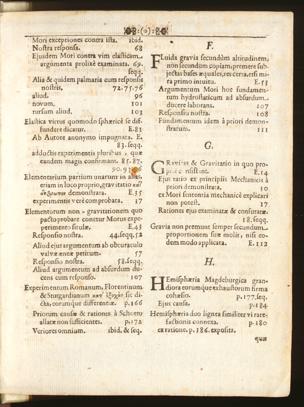 Mori exceptiones contra ista. ibid.
Nostra responsa. 68
Ejusdem Mori contra vim elasticam
argumenta prolixè examinata. 69.
seqq.
Alia & quidem palmaria cum responsis
nostris, 72.75.76
aliud. 96
novum, 101
rursum aliud. 103
Elastica virtus quomodo sphæricè se dif-
fundere dicatur. E.81
Ab Autore anonymo impugnata. E.
83. seqq.
adductis experimentis pluribus
eandem magis confirmant. 85. 87.
90.93
Elementarium partium unarum in
teriam in loco proprio, gravitatio
demonstrata. E.35
experimentis verè comprobata. 17
Elementorum non-gravitationem quo
pacto probare conetur Morus expe-
rimento situlæ. E.43
Responsio nostra 44.seqq.52
Aliud ejus argumentum ab obturaculo
valvæ anteæ petitum. 57
Responsio nostra. 58.seqq.
Aliud argumentum ad absurdum du-
cens cum responso. 107
Experimentum Romanum, Florentinum
& Stutgardianum κατ' ἐξοχὴν sic di-
cta, eorumque differentiæ. p.166
Priorum causæ & rationes à Schotto
allatæ non sufficientes. p.172
Veriores omnium. ibid. & seq.
F.
Fluida gravia secundùm altitudinem,
non secundùm copiam, premere sub-
jectas bases æquales, res certa, etsi mi-
ra primo intuitu. E.53
Argumentum Mori hoc fundamen-
tum hydrostaticum ad absurdum
ducere laborans. 107
Responsio nostra. 108
Fundamentum idem à priori demon-
stratum. 111
G.
Gravitas & Gravitatio in quo pro-
nsistant. E.14
Ejus ratio ex principiis Mechanicis à
priori demonstrata. 10
ex Mori sententia mechanicè explicari
non potest. 17
Rationes ejus examinatæ & confutatæ.
18.seqq.
Gravia non premunt semper secundum
proportionem suæ molis, nisi eo-
dem modo applicata. E.112
H.
Hemisphæria Magdeburgica gran-
diora eorumque exhaustorum firma
cohæsio. p.177.seq.
Ejus causa. p.184
Hemisphæria duo lignea similiter vi rare-
factionis connexa. p.180
ea ratione. p.186. exposita.
quæ